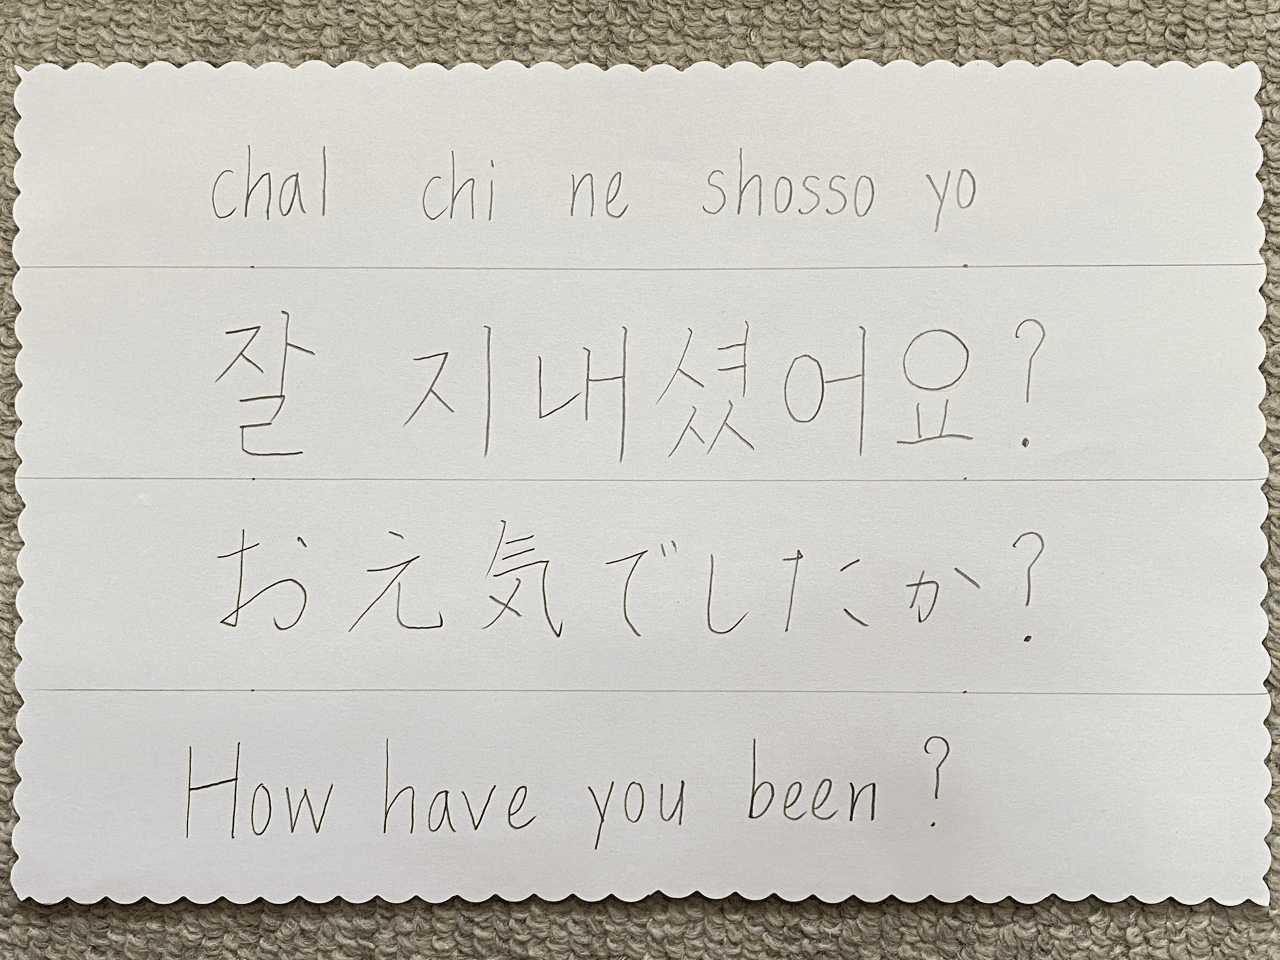 chal chi ne shosso yo
잘 지내셨어요?
お元気でしたか?
How have you been?